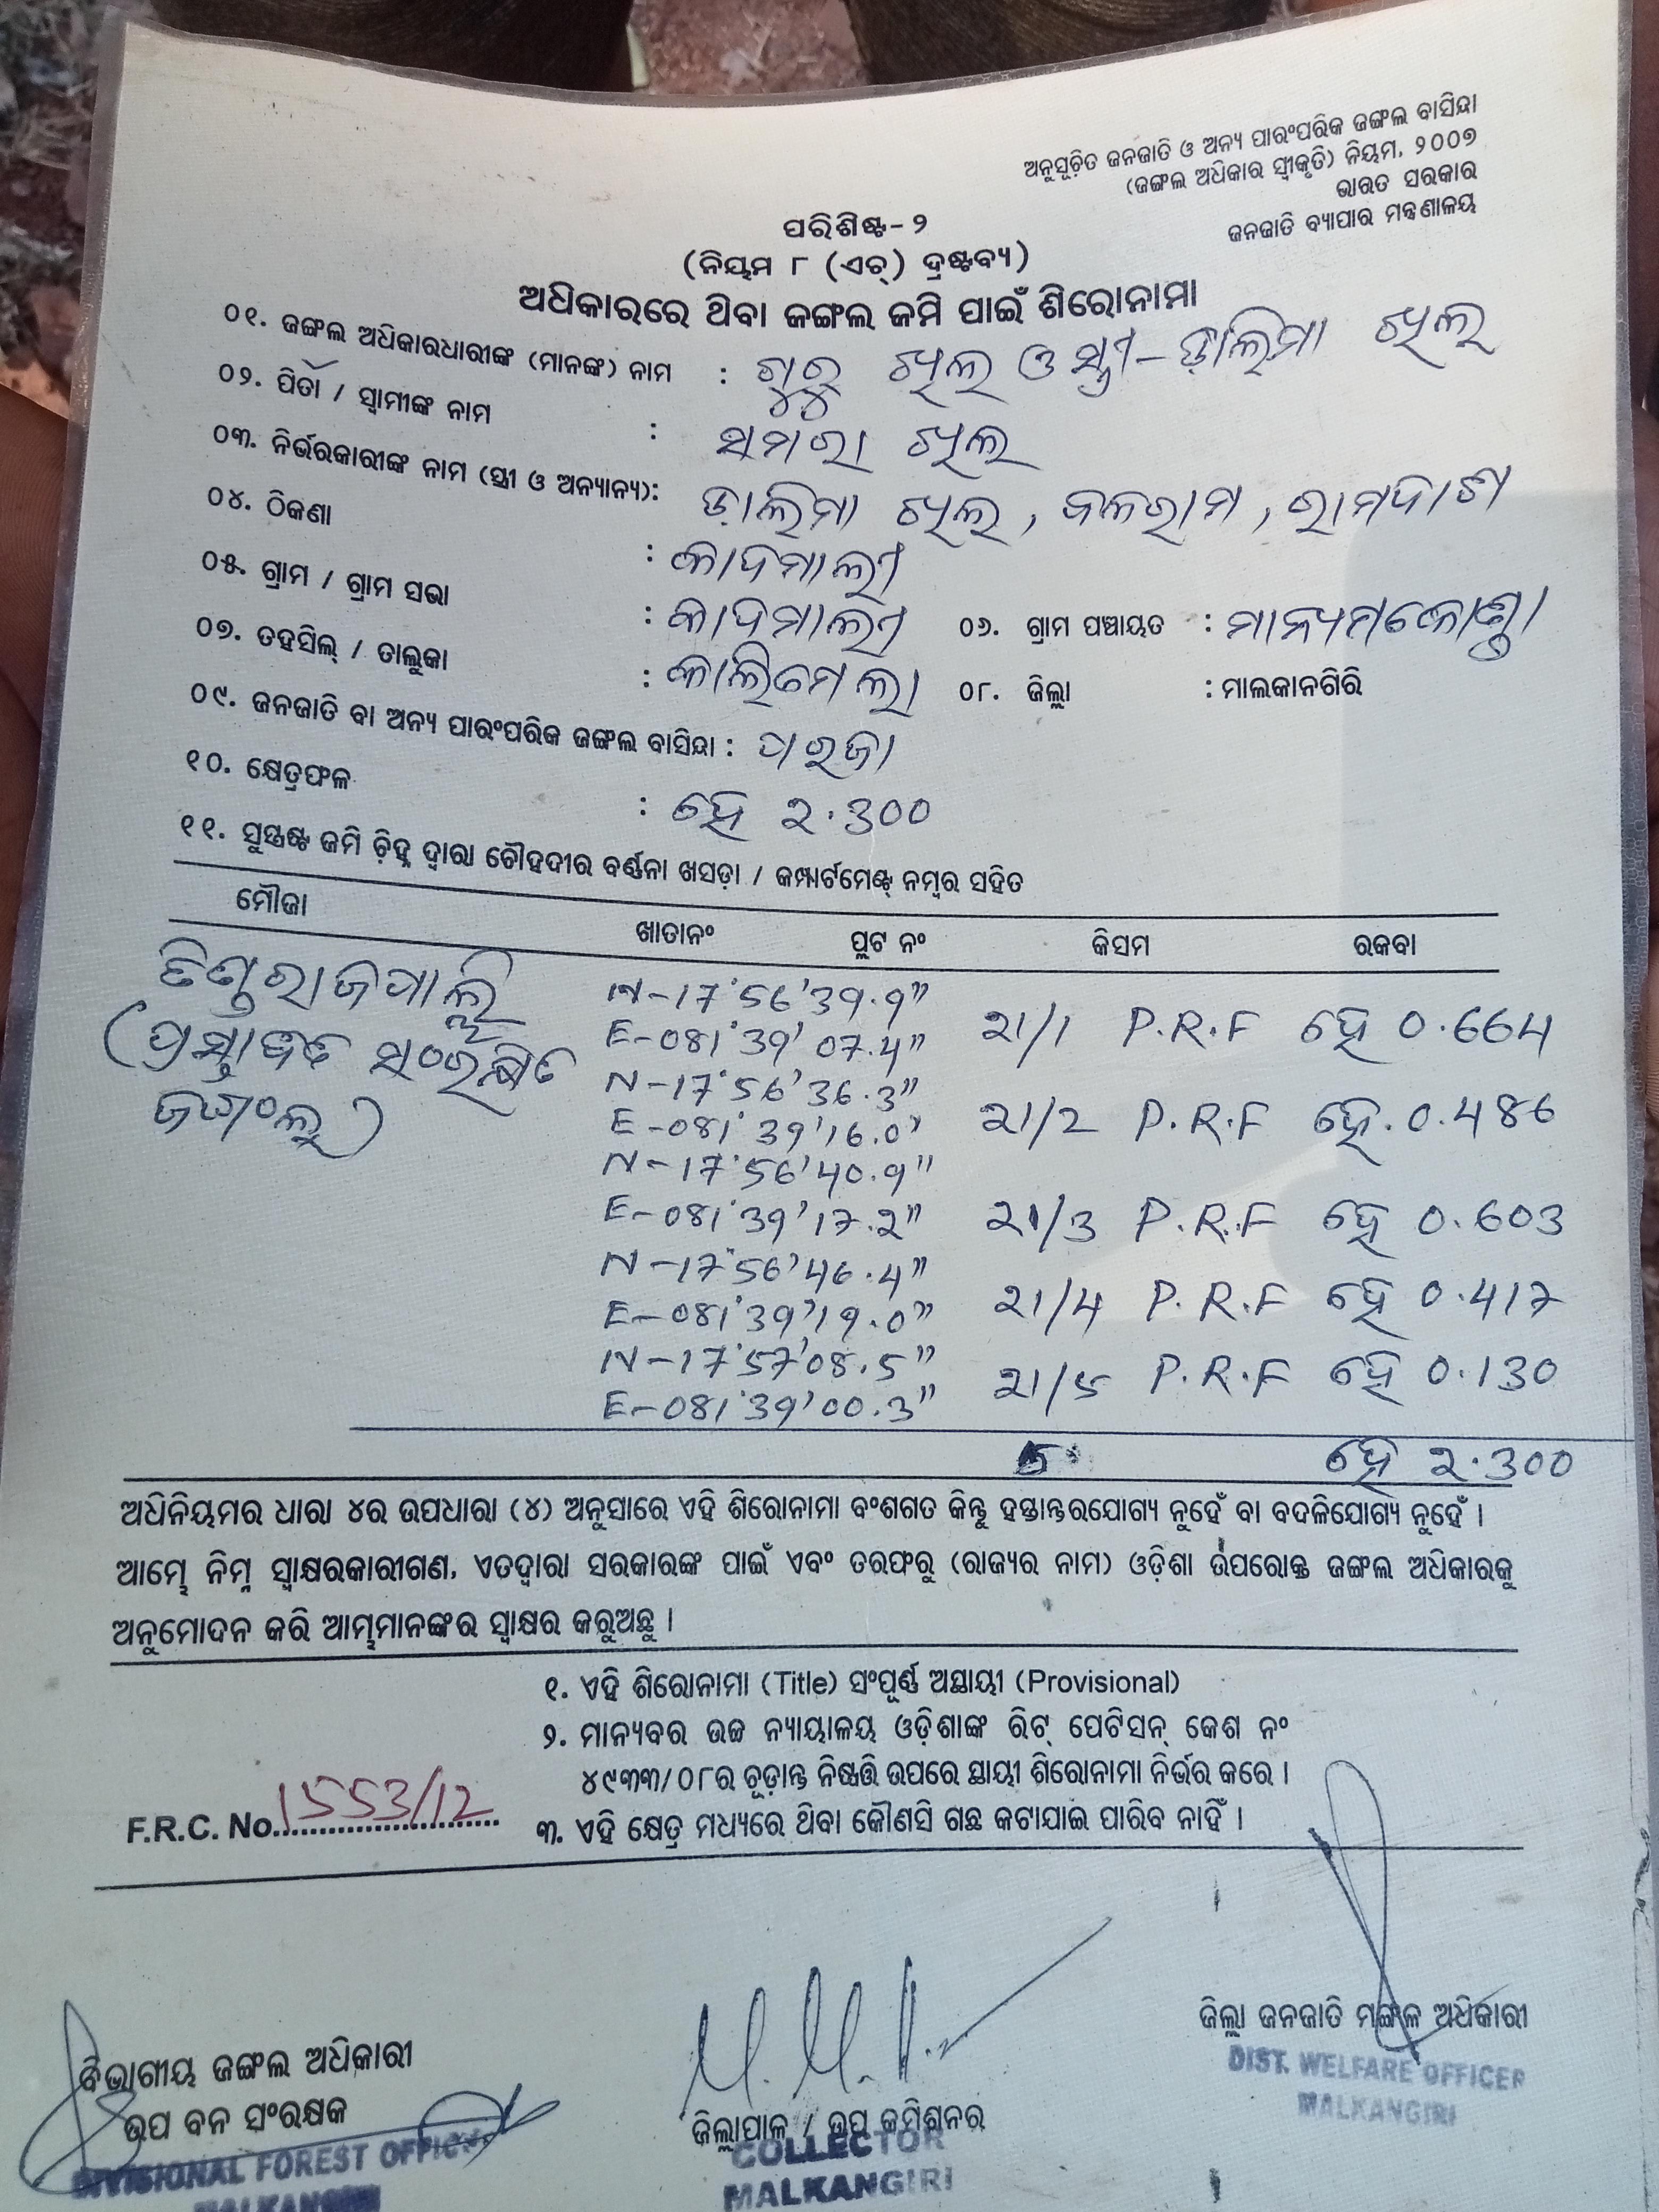 ଅନୁସୂଚିତ ଜନଜାତି ଓ ଅନ୍ୟ ପାରଂପରିକ ଜଙ୍ଗଲ ବାସିନ୍ଦା
(ଜଙ୍ଗଲ ଅଧିକାର ସ୍ୱୀକୃତି) ନିୟମ, ୨୦୦୭
ଭାରତ ସରକାର
ଜନଜାତି ବ୍ୟାପାର ମନ୍ତ୍ରଣାଳୟ
ପରିଶିଷ୍ଟ-୨
(ନିୟମ ୮ (ଏଚ୍) ଦ୍ରଷ୍ଟବ୍ୟ)
ଅଧିକାରରେ ଥିବା ଜଙ୍ଗଲ ଜମି ପାଇଁ ଶିରୋନାମା
୦୧. ଜଙ୍ଗଲ ଅଧିକାରଧାରୀଙ୍କ (ମାନଙ୍କ) ନାମ : ଗୁରୁ ଖିଲ ଓ ସ୍ତ୍ରୀ-ଡ଼ାଲିମା ଖିଲ
୦୨. ପିତା / ସ୍ୱାମୀଙ୍କ ନାମ : ସମରା ଖିଲ
୦୩. ନିର୍ଭରକାରୀଙ୍କ ନାମ (ସ୍ତ୍ରୀ ଓ ଅନ୍ୟାନ୍ୟ): ଡ଼ାଲିମା ଖିଲ, ବଳରାମ, ରାମଦାଶ
୦୪. ଠିକଣା : କାଦମାଲୀ
୦୫. ଗ୍ରାମ / ଗ୍ରାମ ସଭା : କାଦମାଲୀ ୦୬. ଗ୍ରାମ ପଞ୍ଚାୟତ : ମାନ୍ୟମକୋଣ୍ଡା
୦୭. ତହସିଲ୍ / ତାଲୁକା : କାଲିମେଲା ୦୮. ଜିଲ୍ଲା : ମାଲକାନଗିରି
୦୯. ଜନଜାତି ବା ଅନ୍ୟ ପାରଂପରିକ ଜଙ୍ଗଲ ବାସିନ୍ଦା : ପରଜା
୧୦. କ୍ଷେତ୍ରଫଳ : ହେ ୨.୩୦୦
୧୧. ସୁସ୍ପଷ୍ଟ ଜମି ଚ଼ିହ୍ନ ଦ୍ୱାରା ଚୌହଦୀର ବର୍ଣ୍ଣନା ଖସଡ଼ା / କମ୍ପାର୍ଟମେଣ୍ଟ୍ ନମ୍ବର ସହିତ
ମୌଜା ଖାତାନଂ ପ୍ଲଟ ନଂ କିସମ ରକବା
ତିଣ୍ଡରାଜପାଲ୍ଲି N-17°56'39.9" 21/1 P.R.F ହେ 0.664
(ପ୍ରସ୍ତାବିତ ସଂରକ୍ଷିତ E-081°39'07.4"
ଜଙ୍ଗଲ) N-17°56'36.3" 21/2 P.R.F ହେ. 0.486
E-081°39'16.0"
N-17°56'40.9" 21/3 P.R.F ହେ 0.603
E-081°39'17.2"
N-17°56'46.4" 21/4 P.R.F ହେ 0.417
E-081°39'19.0"
N-17°57'08.5" 21/5 P.R.F ହେ 0.130
E-081°39'00.3"
5 ହେ ୨.୩୦୦
ଅଧିନିୟମର ଧାରା ୪ର ଉପଧାରା (୪) ଅନୁସାରେ ଏହି ଶିରୋନାମା ବଂଶଗତ କିନ୍ତୁ ହସ୍ତାନ୍ତରଯୋଗ୍ୟ ନୁହେଁ ବା ବଦଳିଯୋଗ୍ୟ ନୁହେଁ ।
ଆମ୍ଭେ ନିମ୍ନ ସ୍ୱାକ୍ଷରକାରୀଗଣ, ଏତଦ୍ୱାରା ସରକାରଙ୍କ ପାଇଁ ଏବଂ ତରଫରୁ (ରାଜ୍ୟର ନାମ) ଓଡ଼ିଶା ଉପରୋକ୍ତ ଜଙ୍ଗଲ ଅଧିକାରକୁ
ଅନୁମୋଦନ କରି ଆମ୍ଭମାନଙ୍କର ସ୍ୱାକ୍ଷର କରୁଅଛୁ ।
୧. ଏହି ଶିରୋନାମା (Title) ସଂପୂର୍ଣ୍ଣ ଅସ୍ଥାୟୀ (Provisional)
୨. ମାନ୍ୟବର ଉଚ୍ଚ ନ୍ୟାୟାଳୟ ଓଡ଼ିଶାଙ୍କ ରିଟ୍ ପେଟିସନ୍ କେଶ ନଂ
୪୯୩୩/୦୮ର ଚୂଡ଼ାନ୍ତ ନିଷ୍ପତ୍ତି ଉପରେ ସ୍ଥାୟୀ ଶିରୋନାମା ନିର୍ଭର କରେ ।
F.R.C. No. 1553/12 ୩. ଏହି କ୍ଷେତ୍ର ମଧ୍ୟରେ ଥିବା କୌଣସି ଗଛ କଟାଯାଇ ପାରିବ ନାହିଁ ।
ଜିଲ୍ଲା ଜନଜାତି ମଙ୍ଗଳ ଅଧିକାରୀ
DIST. WELFARE OFFICER
MALKANGIRI
ବିଭାଗୀୟ ଜଙ୍ଗଲ ଅଧିକାରୀ
ଉପ ବନ ସଂରକ୍ଷକ
DIVISIONAL FOREST OFFICER
MALKANGIRI
ଜିଲ୍ଲାପାଳ / ଉପ କମିଶନର
COLLECTOR
MALKANGIRI